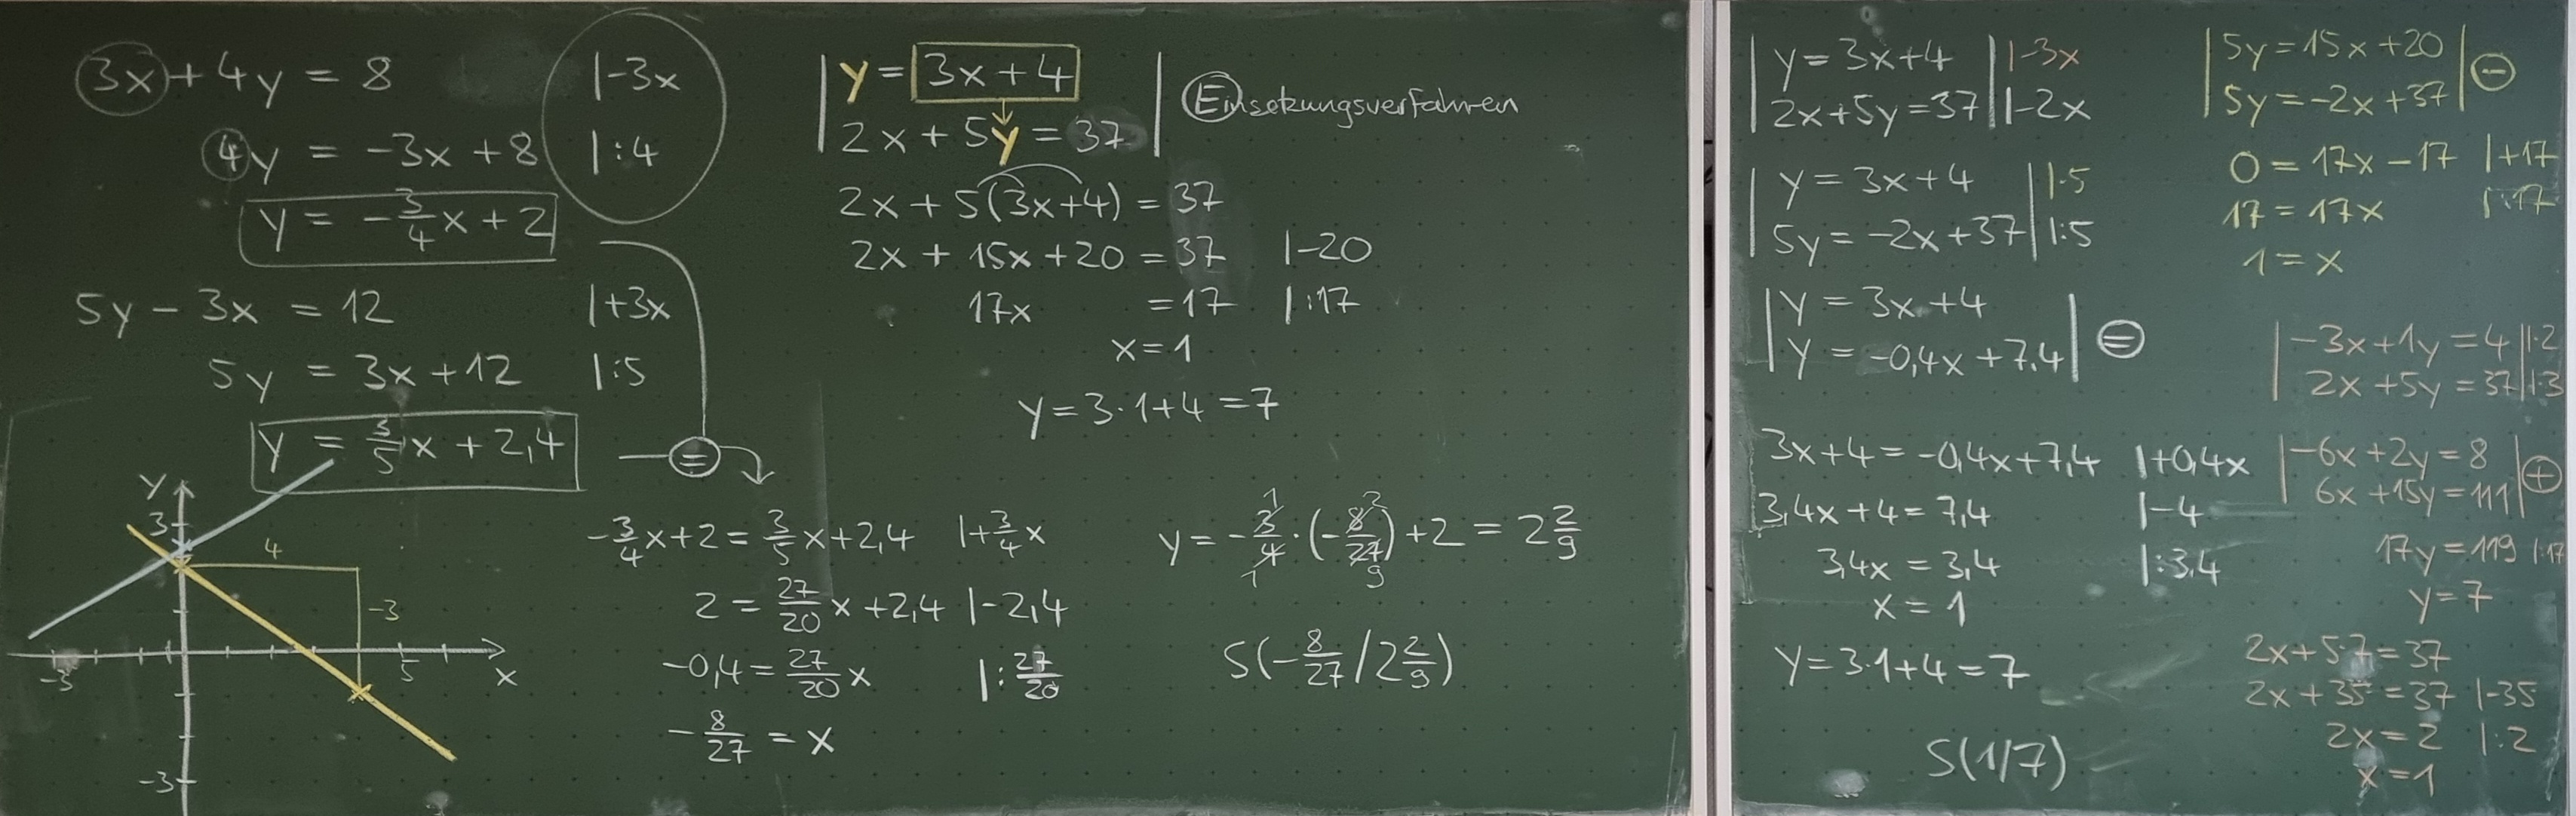 3x + 4y = 8 |-3x
4y = -3x + 8 |:4
y = -3/4 x + 2
5y - 3x = 12 |+3x
5y = 3x + 12 |:5
y = 3/5 x + 2,4
=
y
3
4
-3
-3
5
x
-3
-3/4 x + 2 = 3/5 x + 2,4 |+3/4 x
2 = 27/20 x + 2,4 |-2,4
-0,4 = 27/20 x |:27/20
-8/27 = x
| y = 3x + 4 |
| 2x + 5y = 37 | Einsetzungsverfahren
2x + 5(3x+4) = 37
2x + 15x + 20 = 37 |-20
17x = 17 |:17
x = 1
y = 3·1+4 = 7
1 2
y = -3/4 · (-8/27) + 2 = 2 2/9
1 9
S(-8/27 / 2 2/9)
| y = 3x+4 | |-3x
| 2x+5y = 37 | |-2x
| y = 3x+4 | |·5
| 5y = -2x+37 | |:5
| y = 3x+4 |
| y = -0,4x+7,4 | =
3x+4 = -0,4x+7,4 |+0,4x
3,4x+4 = 7,4 |-4
3,4x = 3,4 |:3,4
x = 1
y = 3·1+4 = 7
S(1/7)
| 5y = 15x+20 |
| 5y = -2x+37 | -
0 = 17x-17 |+17
17 = 17x |:17
1 = x
| -3x+1y = 4 | |·2
| 2x+5y = 37 | |·3
| -6x+2y = 8 |
| 6x+15y = 111 | +
17y = 119 |:17
y = 7
2x+5·7 = 37
2x+35 = 37 |-35
2x = 2 |:2
x = 1